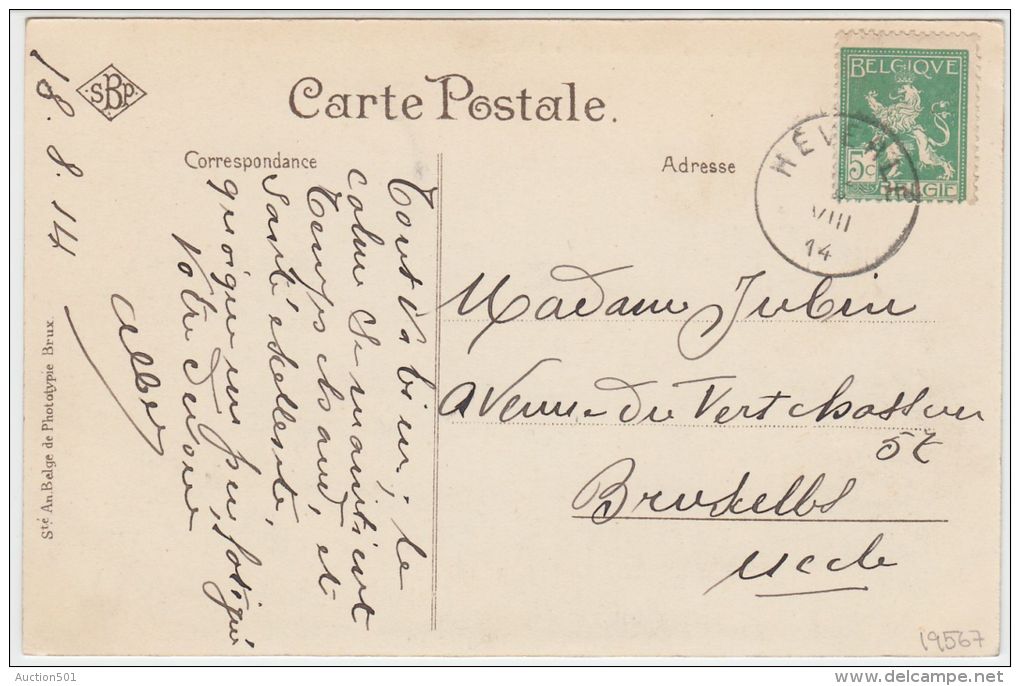 18. 8. 14
SBP
Carte Postale.
Correspondance
Adresse
BELGIQVE
5c
BELGIË
VIII
14
Tout va bien, le
calme se maintient
Temps chaud, et
Santé excellente,
quoique un peu fatigué
Votre dévoué
Albert
Madame Jubin
Avenue du Vert chasseur
Bruxelles
Uccle
Sté An. Belge de Phototypie Brux.
19567
Auction501
www.delcampe.net